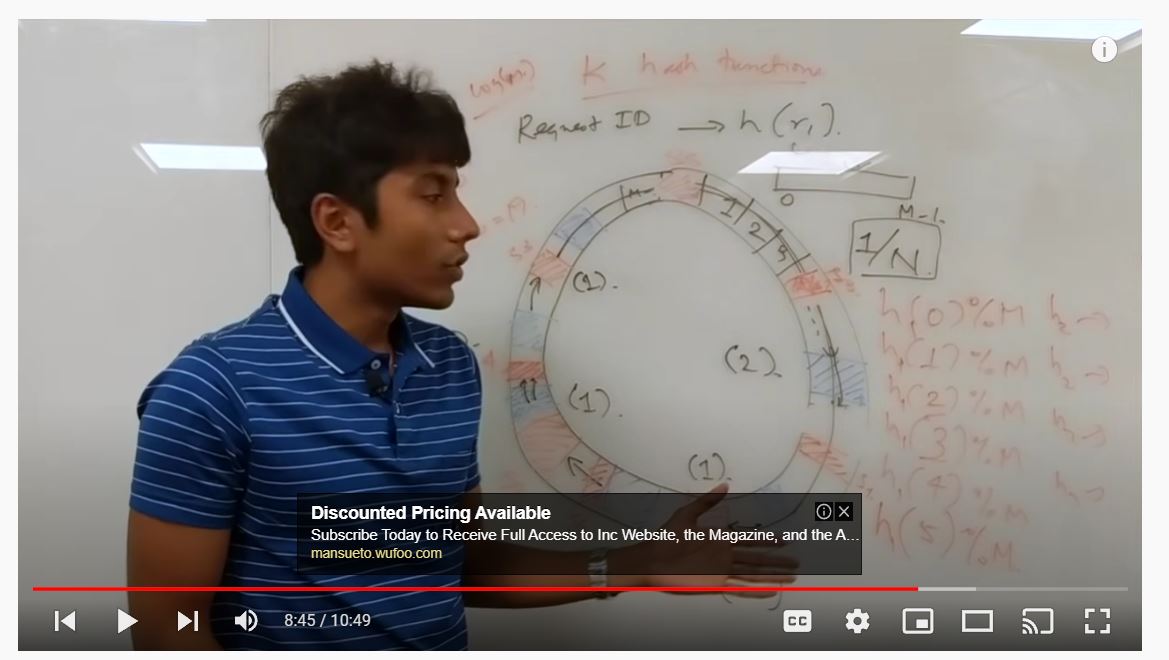 K hash functions
Request ID → h(r₁).
0
M-1.
1/N
1
2
3
(1).
(2).
(1).
(1).
h(0)%M h₂ →
h₁(1)%M h₂ →
h₁(2)%M
h₁(3)%M
h₁(4)%M
h(5)%M
Discounted Pricing Available
Subscribe Today to Receive Full Access to Inc Website, the Magazine, and the A...
mansueto.wufoo.com
8:45 / 10:49
CC